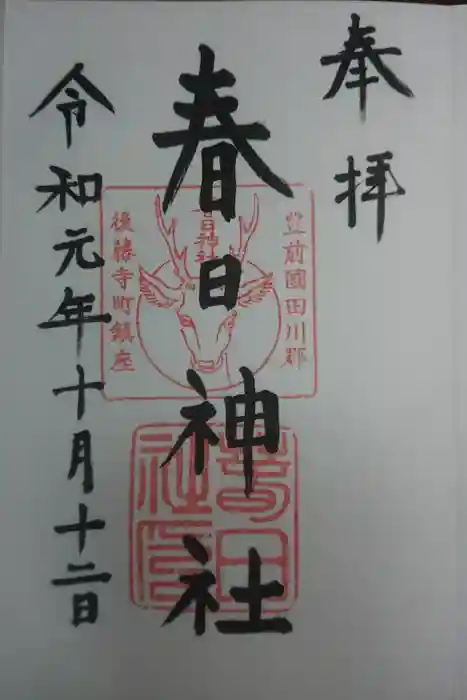 奉拝
春日神社
令和元年十月十二日
豊前國田川郡
春日神社
後勝寺町鎮座
春日
社印